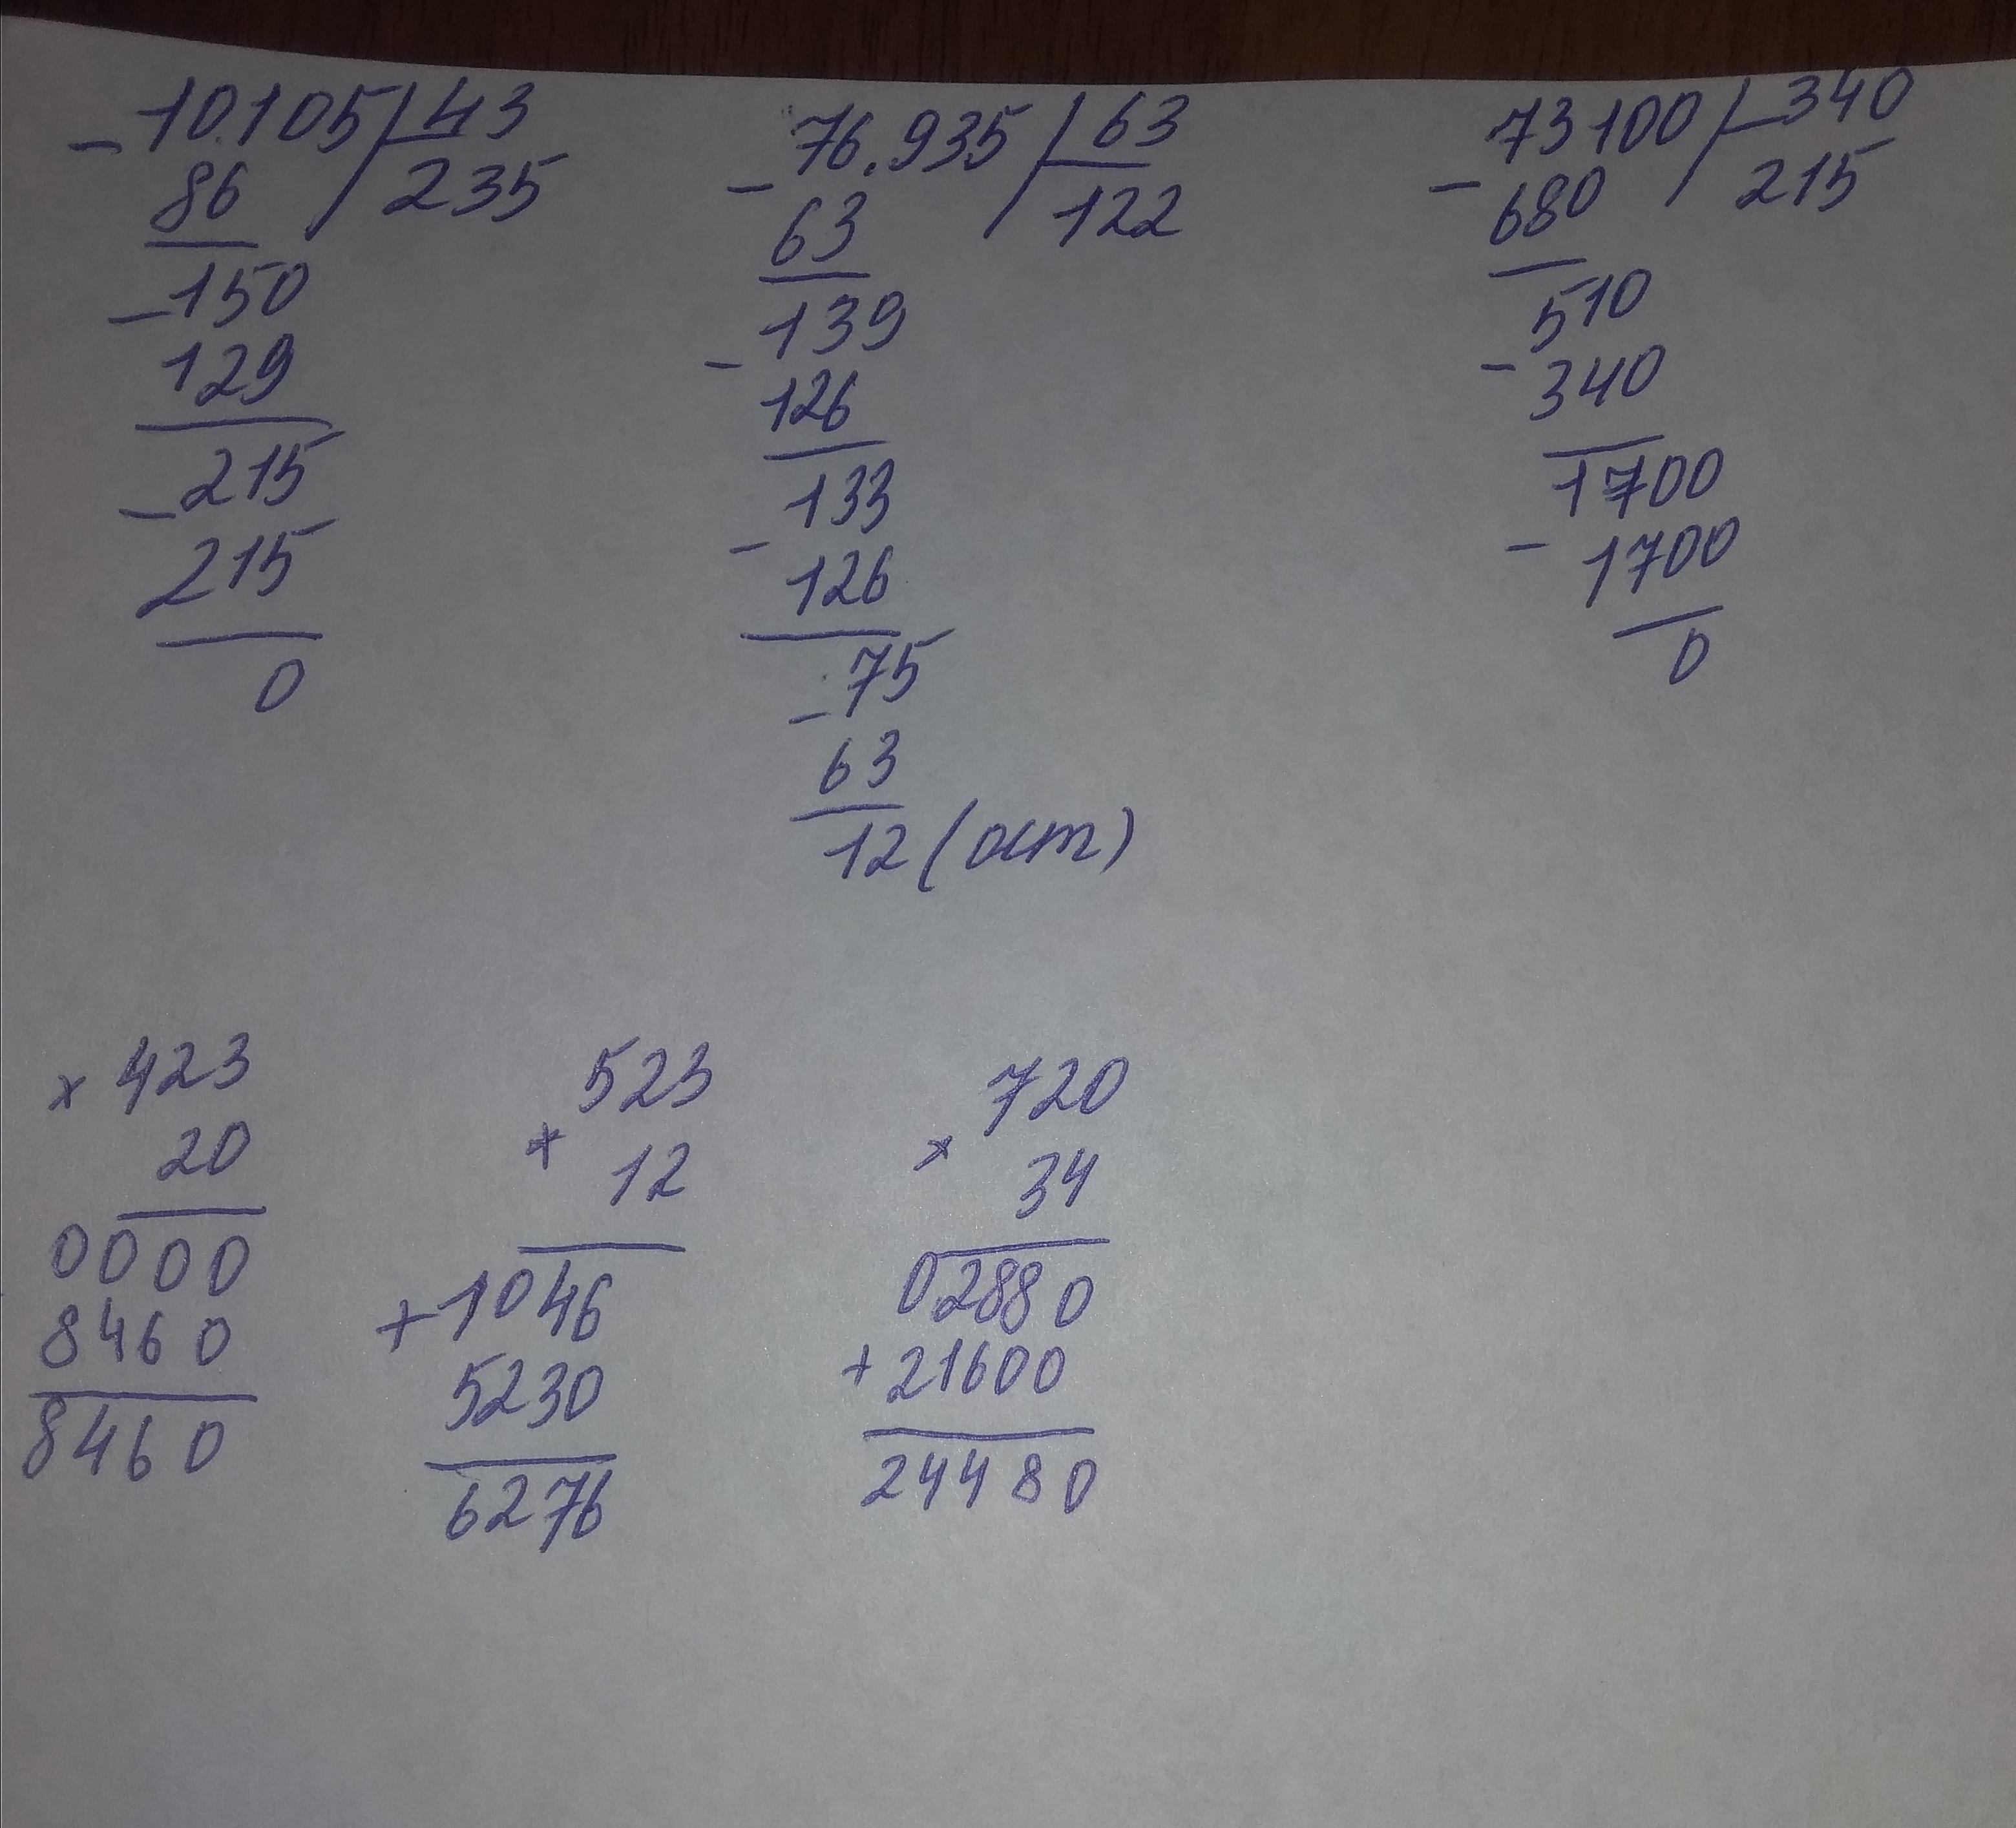 - 10.105 | 43
86 | 235
- 150
129
- 215
215
0
- 76.935 | 63
63 | 122
- 139
126
- 133
126
- 75
63
12 (ост)
- 73100 | 340
680 | 215
- 510
340
- 1700
1700
0
× 423
20
0000
8460
8460
× 523
12
+ 1046
5230
6276
× 720
34
02880
+ 21600
24480